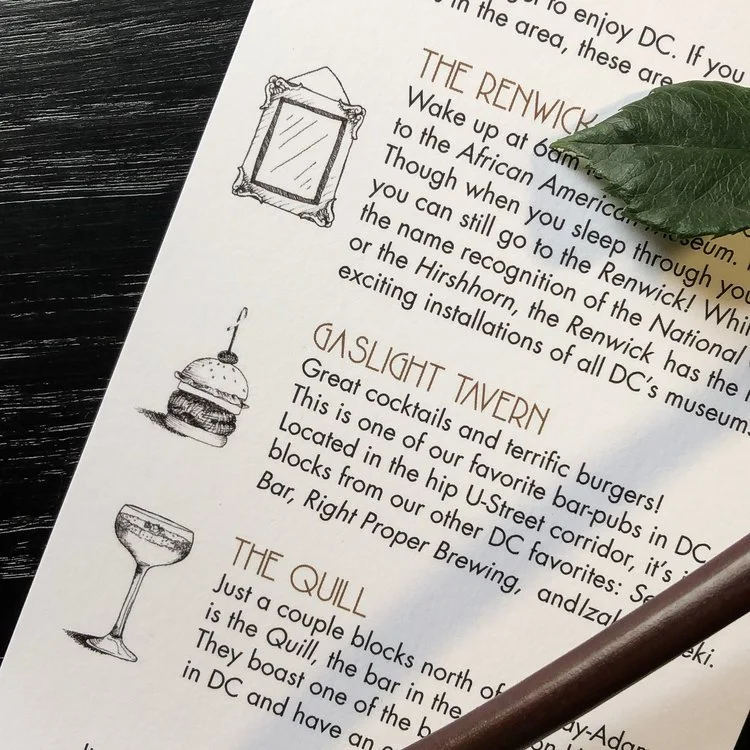 to enjoy DC. If you
in the area, these are
THE RENWICK
Wake up at 6am
to the African American Museum.
Though when you sleep through you
you can still go to the Renwick! Whi
the name recognition of the National
or the Hirshhorn, the Renwick has the
exciting installations of all DC's museums.
GASLIGHT TAVERN
Great cocktails and terrific burgers!
This is one of our favorite bar-pubs in DC.
Located in the hip U-Street corridor, it's
blocks from our other DC favorites:
Bar, Right Proper Brewing, and Iza
THE QUILL
Just a couple blocks north of
is the Quill, the bar in the ay-Adam
They boast one of the b
in DC and have an